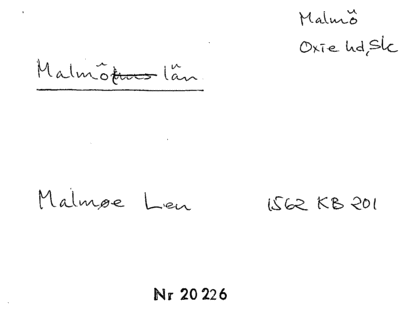 Malmö
Oxie hd, Sk
Malmö län
Malmøe Len 1562 KB 201
Nr 20 226